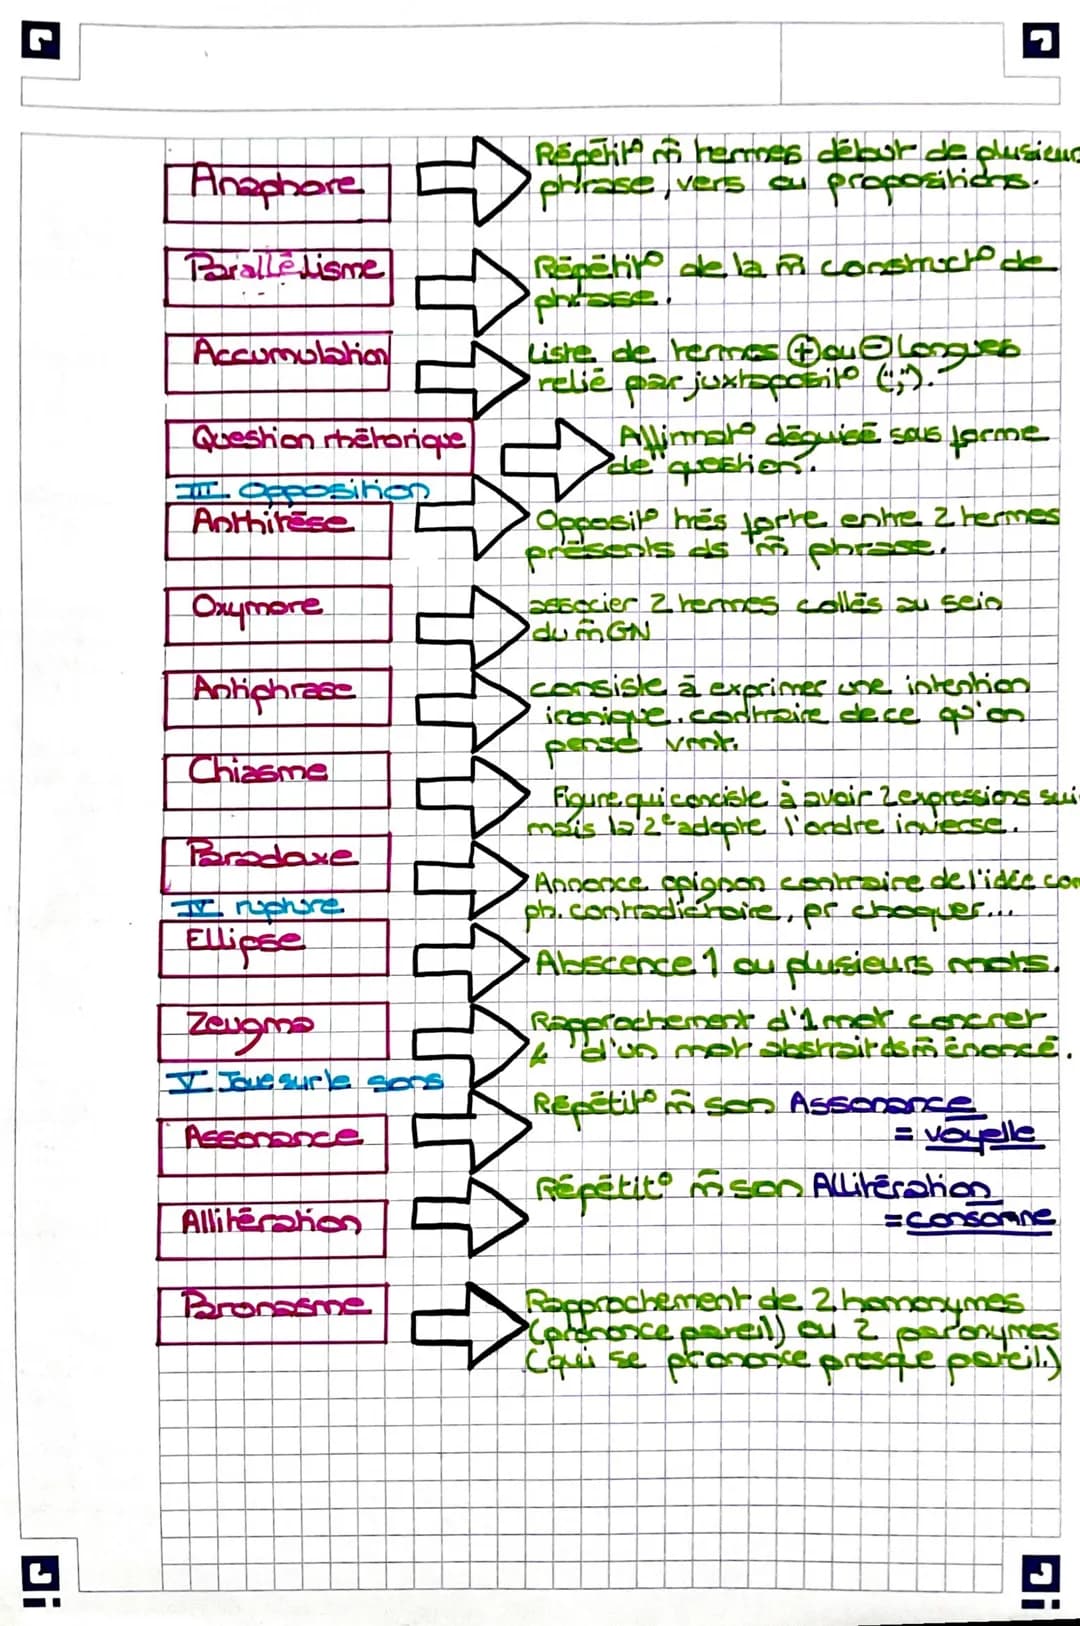 Anaphore
Répétit° m̄ termes début de plusieurs
phrase, vers ou propositions.
Parallélisme
Répétit° de la m̄ construct° de
phrase.
Accumulation
Liste de termes ⊕ ou ⊖ longues
relié par juxtaposit° (",").
Question rhétorique
Affirmat° déguisé sous forme
de question.
III Opposition
Anthitèse
Opposit° très forte entre 2 termes
présents ds m̄ phrase.
Oxymore
associer 2 termes collés au sein
du m̄ GN
Antiphrase
consiste à exprimer une intention
ironique. contraire de ce qu'on
pense vmt.
Chiasme
Figure qui conciste à avoir 2 expressions sui
mais la 2e adopte l'ordre inverse.
Paradoxe
Annonce opignon contraire de l'idée com
ph. contradictoire, pr choquer...
IV rupture
Ellipse
Abscence 1 ou plusieurs mots.
Zeugma
Rapprochement d'1 mot concret
& d'un mot abstrait ds m̄ énoncé.
V Joue sur le sons
Assonance
Répétit° m̄ son Assonance
= voyelle
Allitération
Répétit° m̄ son Allitération
= consonne
Paronasme
Rapprochement de 2 homonymes
(prononce pareil) ou 2 paronymes
(qui se prononce presque pareil.)